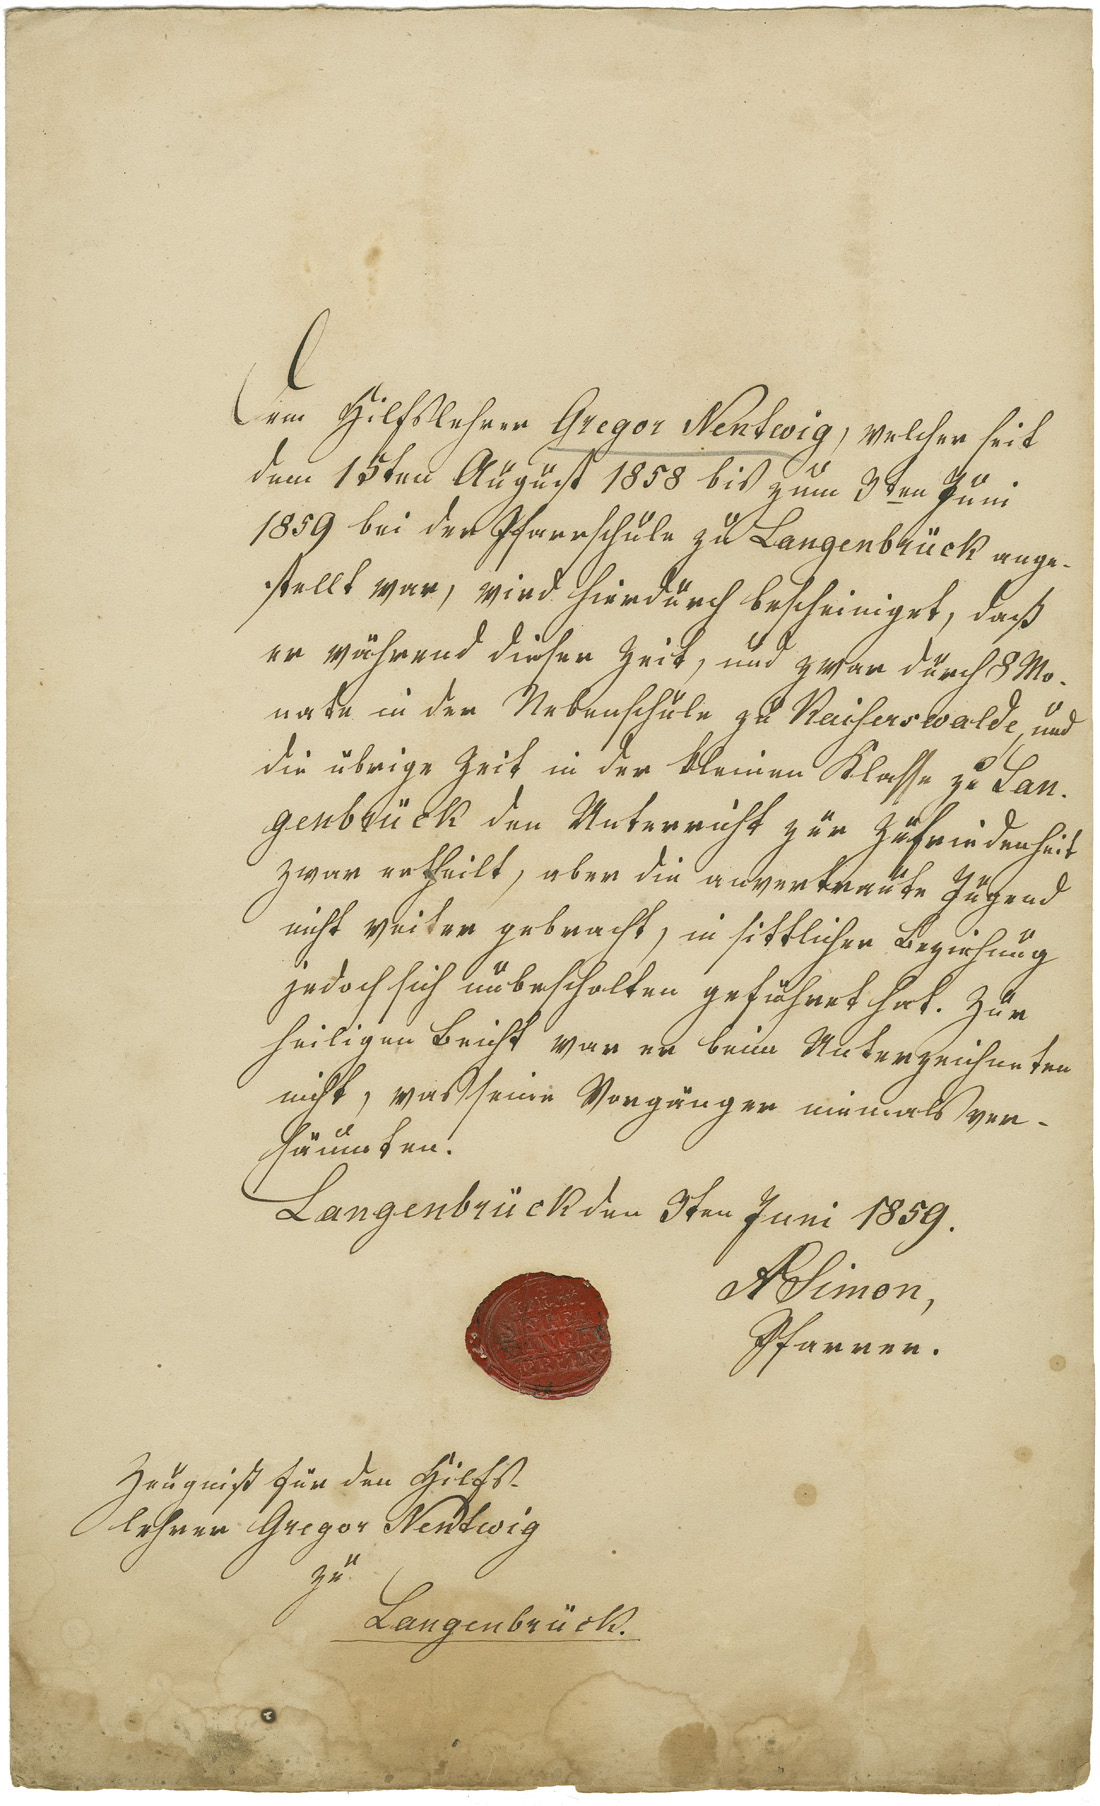 Dem Hilfslehrer Gregor Nentwig, welcher seit
dem 15ten August 1858 bis zum 3ten Juni
1859 bei der Pfarrschule zu Langenbrück ange-
stellt war, wird hierdurch bescheiniget, daß
er während dieser Zeit, und zwar durch 8 Mo-
nate in der Nebenschule zu Kaiserswalde, und
die übrige Zeit in der kleinen Klasse zu Lan-
genbrück den Unterricht zur Zufriedenheit
zwar ertheilt, aber die anvertraute Jugend
nicht weiter gebracht, in sittlicher Beziehung
jedoch sich unbescholten geführet hat. Zur
heiligen Beicht war er beim Unterzeichneten
nicht, was seine Vorgänger niemals ver-
säumten.
Langenbrück den 3ten Juni 1859.
A Simon,
Pfarrer.
Zeugniß für den Hilfs-
lehrer Gregor Nentwig
zu
Langenbrück.